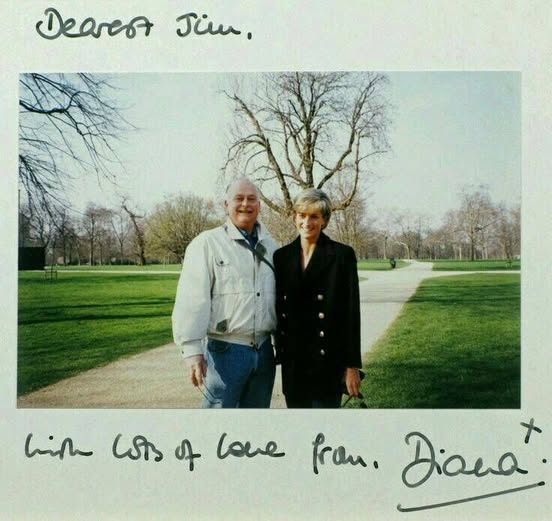 Dearest Jim,
with lots of love from, Diana x.